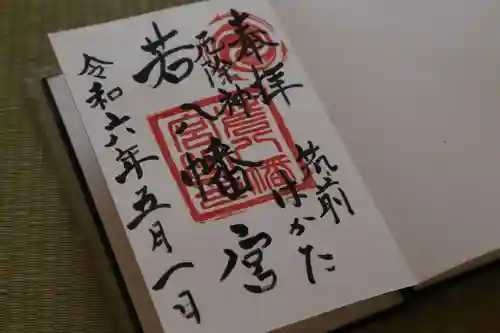 奉拝
筑前
はかた
厄除神
若八幡宮
令和六年五月一日